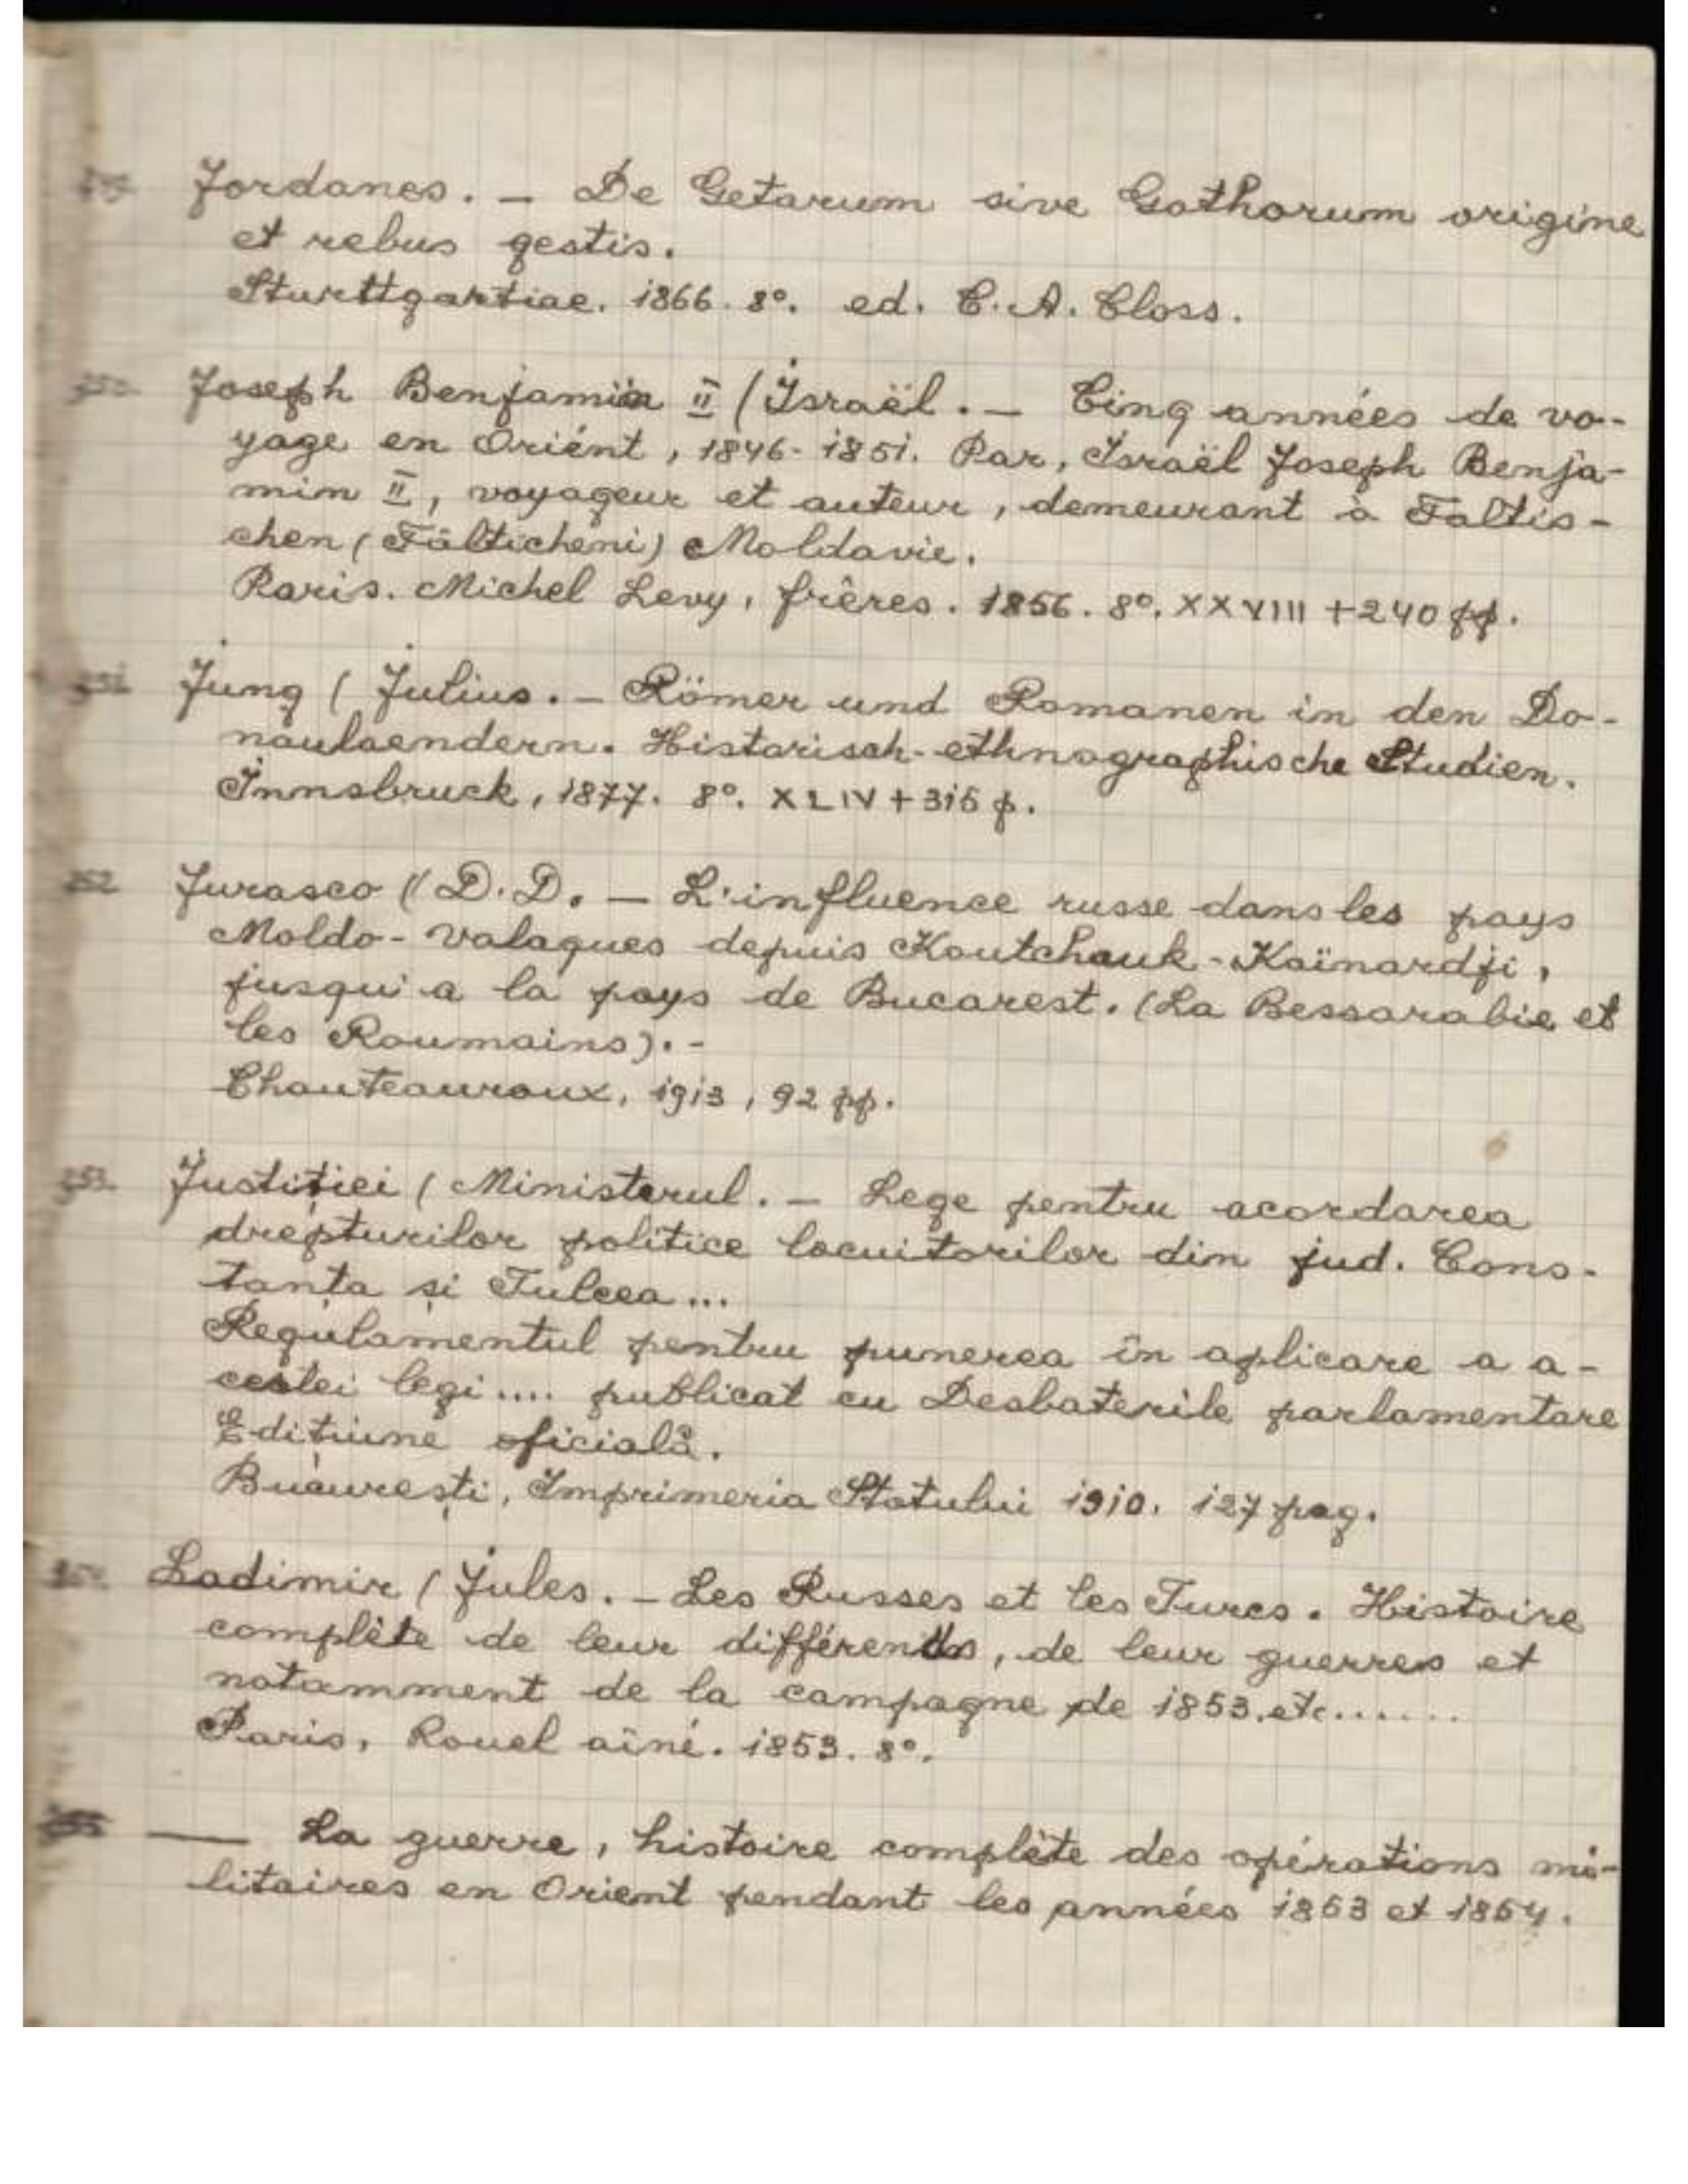 Jordanes. — De Getarum sive Gothorum origine
et rebus gestis.
Sturttgartiae. 1866. 8°. ed. C. A. Closs.
Joseph Benjamin II (Israël. — Cinq années de vo-
yage en Oriént, 1846-1851. Par, Israël Joseph Benja-
min II, voyageur et auteur, demeurant à Faltis-
chen (Fălticheni) Moldavie.
Paris. Michel Levy, frêres. 1856. 8°. XXVIII + 240 pp.
351. Jung (Julius. — Römer und Romanen in den Do-
naulaendern. Historisch-ethnographische Studien.
Innsbruck, 1877. 8°. XLIV + 315 p.
352 Jurasco (D. D. — L'influence russe dans les pays
Moldo-valaques depuis Koutchouk-Kaïnardji,
jusqu'a la pays de Bucarest. (La Bessarabie et
les Roumains). -
Chauteauroux, 1913, 92 pp.
353. Justiției (Ministerul. — Lege pentru acordarea
drepturilor politice locuitorilor din jud. Cons-
tanța și Tulcea...
Regulamentul pentru punerea în aplicare a a-
cestei legi.... publicat cu Desbaterile parlamentare
Edițiune oficială.
București, Imprimeria Statului 1910. 127 pag.
354. Ladimir (Jules. — Les Russes et les Turcs. Histoire
complète de leur différends, de leur guerres et
notamment de la campagne de 1853. etc.......
Paris, Rouel aîné. 1853. 8°.
—— La guerre, histoire complète des opérations mi-
litaires en Orient pendant les années 1853 et 1854.